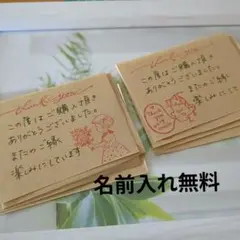 Thank you
この度はご購入頂き
ありがとうございました。
またのご縁
楽しみにしています
Thank you
この度はご購入頂き
ありがとうございました。
またのご縁
楽しみにして
名前入れ無料